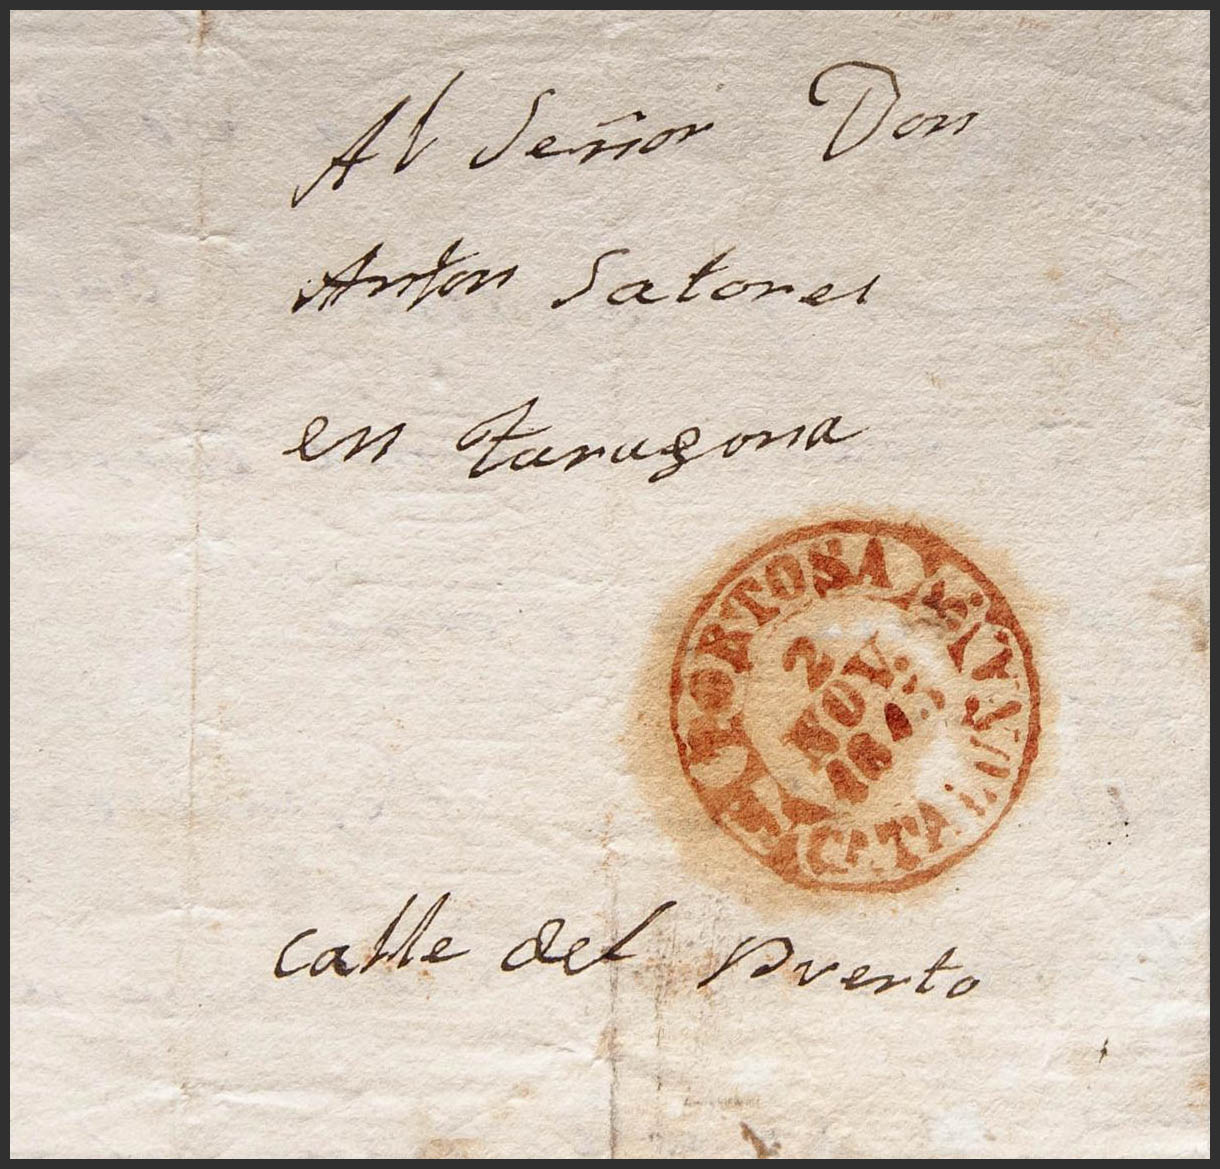 Al Señor Don
Anton Satores
en Taragona
TORTOSA
2
NOV.
1845
CATALUÑA
calle del Puerto